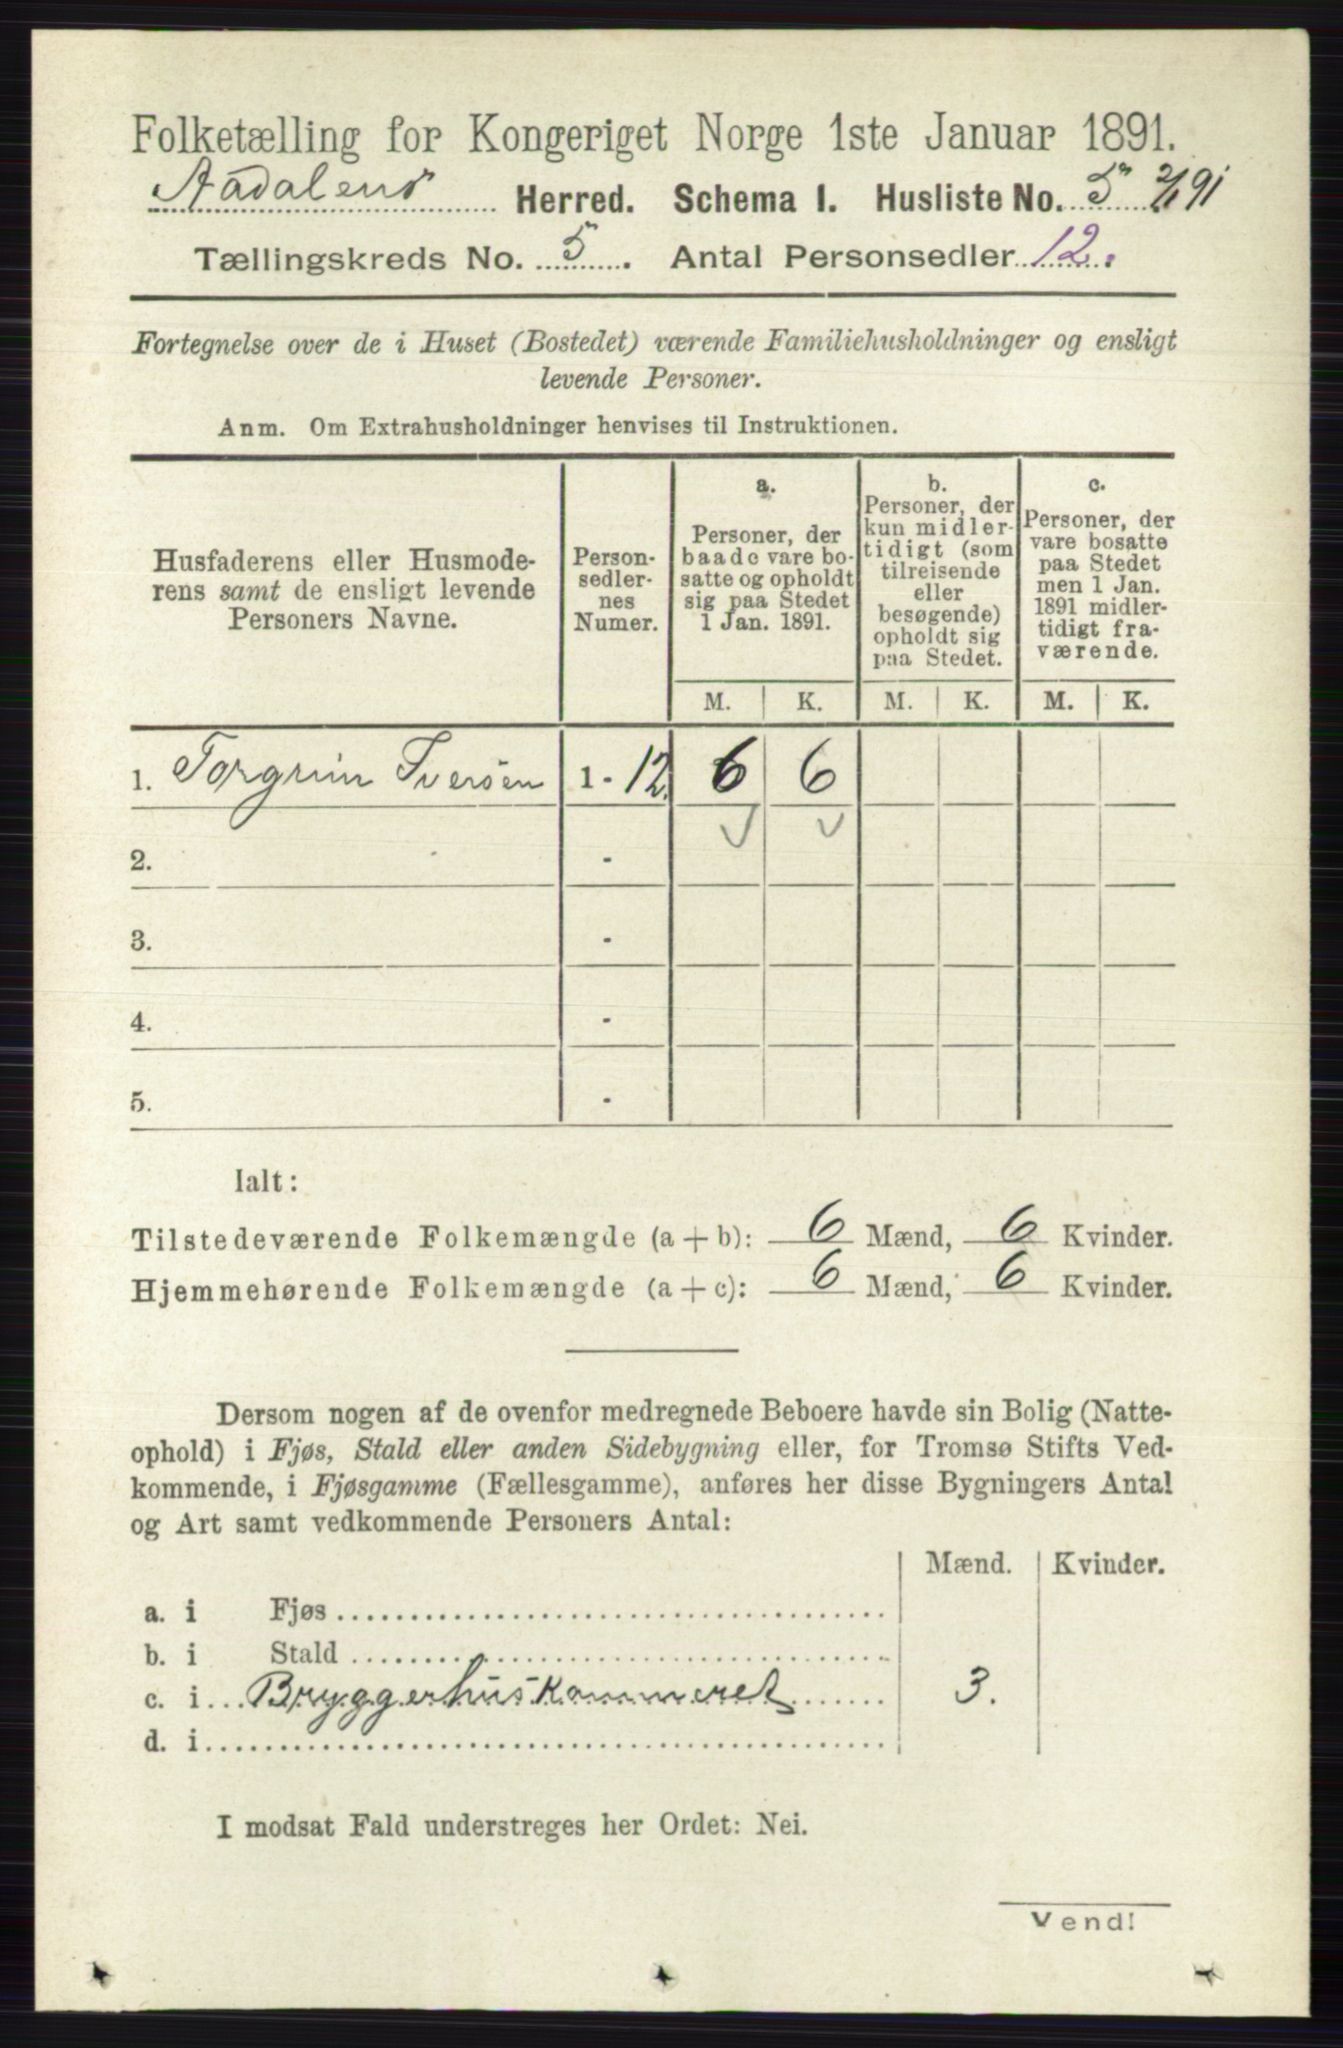 Folketælling for Kongeriget Norge 1ste Januar 1891.
Aadalens Herred. Schema 1. Husliste No. 5 2/1 91
Tællingskreds No. 5. Antal Personsedler 12.
Fortegnelse over de i Huset (Bostedet) værende Familiehusholdninger og ensligt
levende Personer.
Anm. Om Extrahusholdninger henvises til Instruktionen.
Husfaderens eller Husmode-
rens samt de ensligt levende
Personers Navne.
Person-
sedler-
nes
Numer.
a.
Personer, der
baade vare bo-
satte og opholdt
sig paa Stedet
1 Jan. 1891.
b.
Personer, der
kun midler-
tidigt (som
tilreisende
eller
besøgende)
opholdt sig
paa Stedet.
c.
Personer, der
vare bosatte
paa Stedet
men 1 Jan.
1891 midler-
tidigt fra-
værende.
M. K. M. K. M. K.
1. Torgrim Iversen 1 - 12. 6 6
2. -
3. -
4. -
5. -
Ialt:
Tilstedeværende Folkemængde (a + b): 6 Mænd, 6 Kvinder.
Hjemmehørende Folkemængde (a + c): 6 Mænd, 6 Kvinder.
Dersom nogen af de ovenfor medregnede Beboere havde sin Bolig (Natte-
ophold) i Fjøs, Stald eller anden Sidebygning eller, for Tromsø Stifts Ved-
kommende, i Fjøsgamme (Fællesgamme), anføres her disse Bygningers Antal
og Art samt vedkommende Personers Antal:
Mænd. Kvinder.
a. i Fjøs
b. i Stald
c. i Bryggerhuskammeret 3.
d. i
I modsat Fald understreges her Ordet: Nei.
Vend!